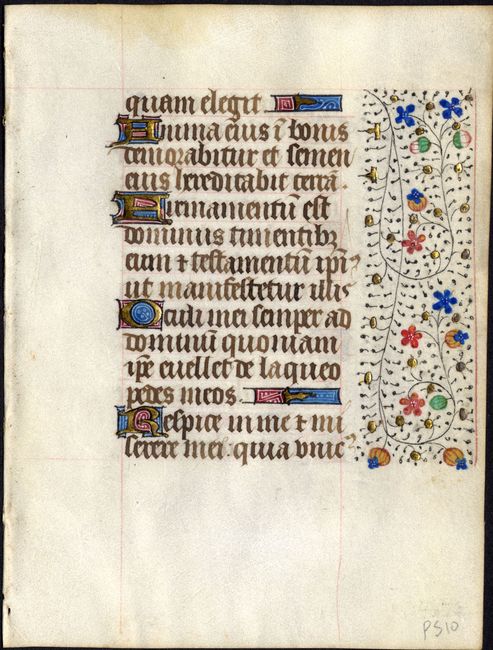 quam elegit
Anima eius ī bonis
demorabitur et semen
eius hereditabit terrā.
Firmamentū est
dominus timentibꝫ
eum ⁊ testamentū ipīꝰ
ut manifestetur illis
Oculi mei semper ad
dominū quoniam
ip̄e euellet de laqueo
pedes meos
Respice in me ⁊ mi
serere mei: quia vnicꝰ
PS10